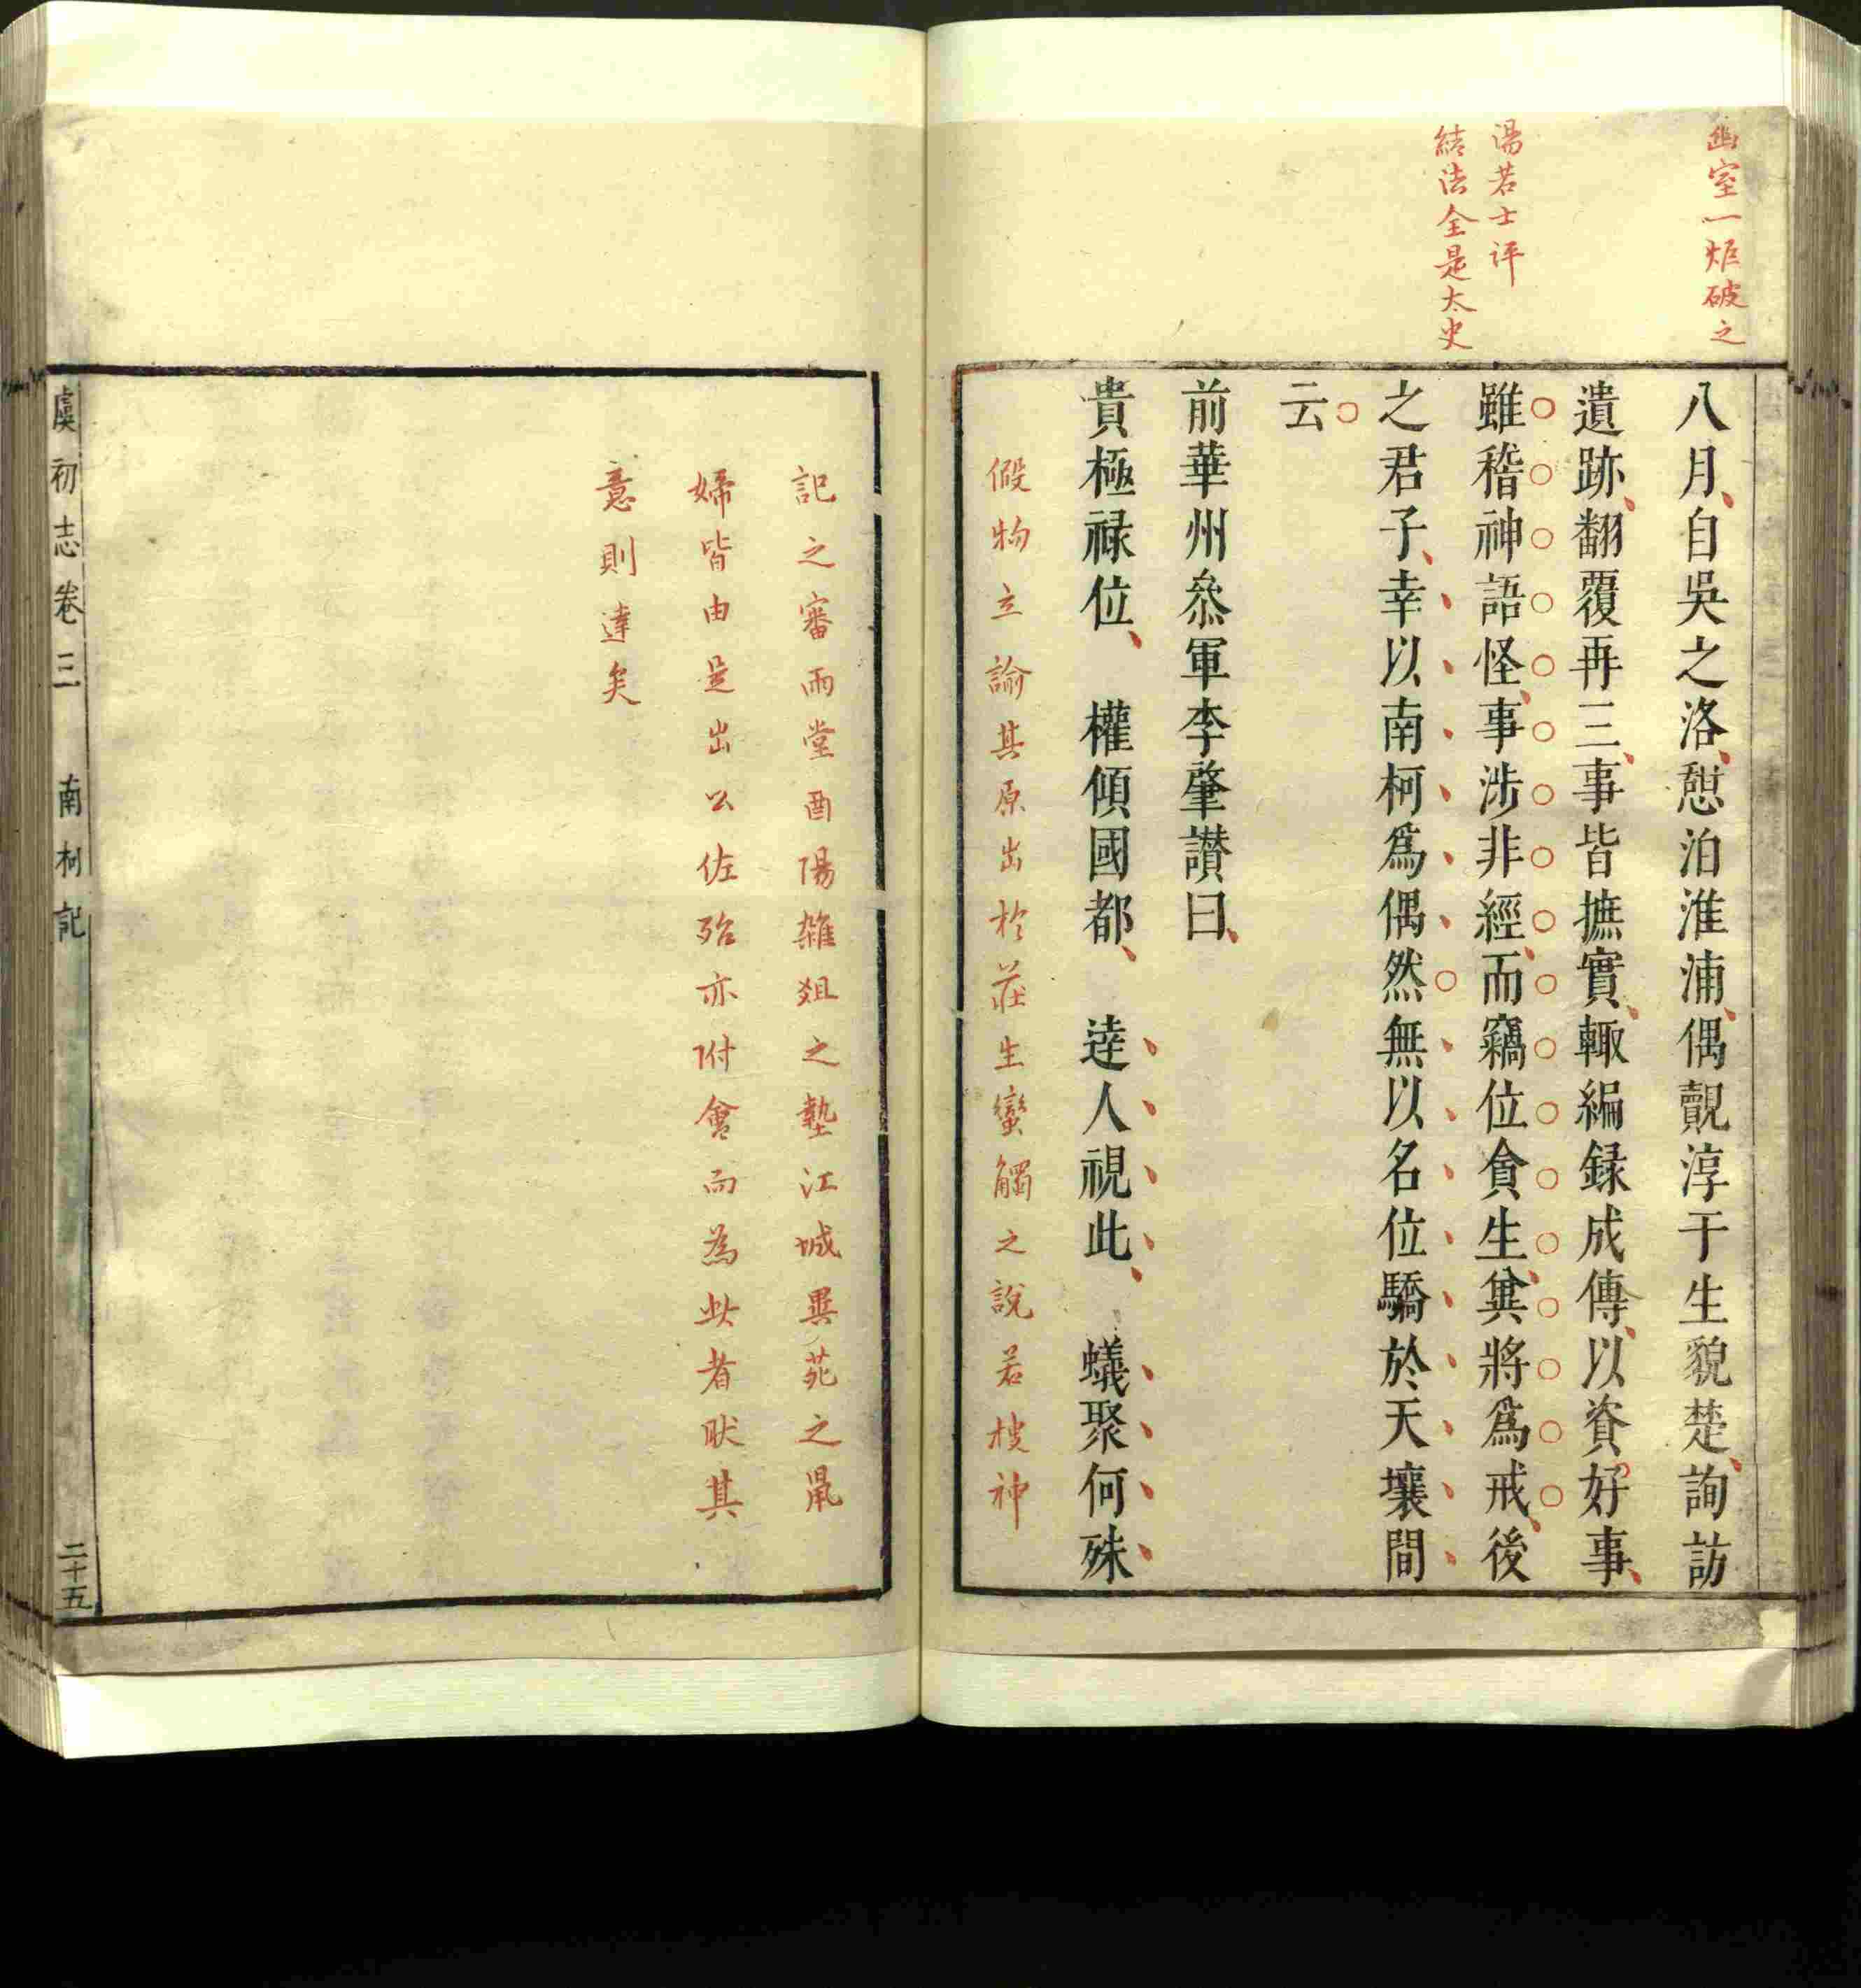 幽室一炬破之
湯若士評
結法全是太史
八月、自吳之洛、憇泊淮浦、偶覿淳于生貌楚、詢訪
遺跡、翻覆再三、事皆摭實、輙編録成傳、以資好事、
雖稽神語怪、事涉非經、而竊位貪生、兾將爲戒、後
之君子、幸以南柯爲偶然、無以名位驕於天壤間
云。
前華州叅軍李肇讃曰、
貴極禄位、 權傾國都、 逹人視此、 蟻聚何殊
假物立諭其原出於莊生蠻觸之說若搜神
記之審雨堂酉陽雜俎之蟄江城異苑之鼠
婦皆由是出公佐殆亦附會而為此者耿其
意則達矣
虞初志卷三 南柯記 二十五